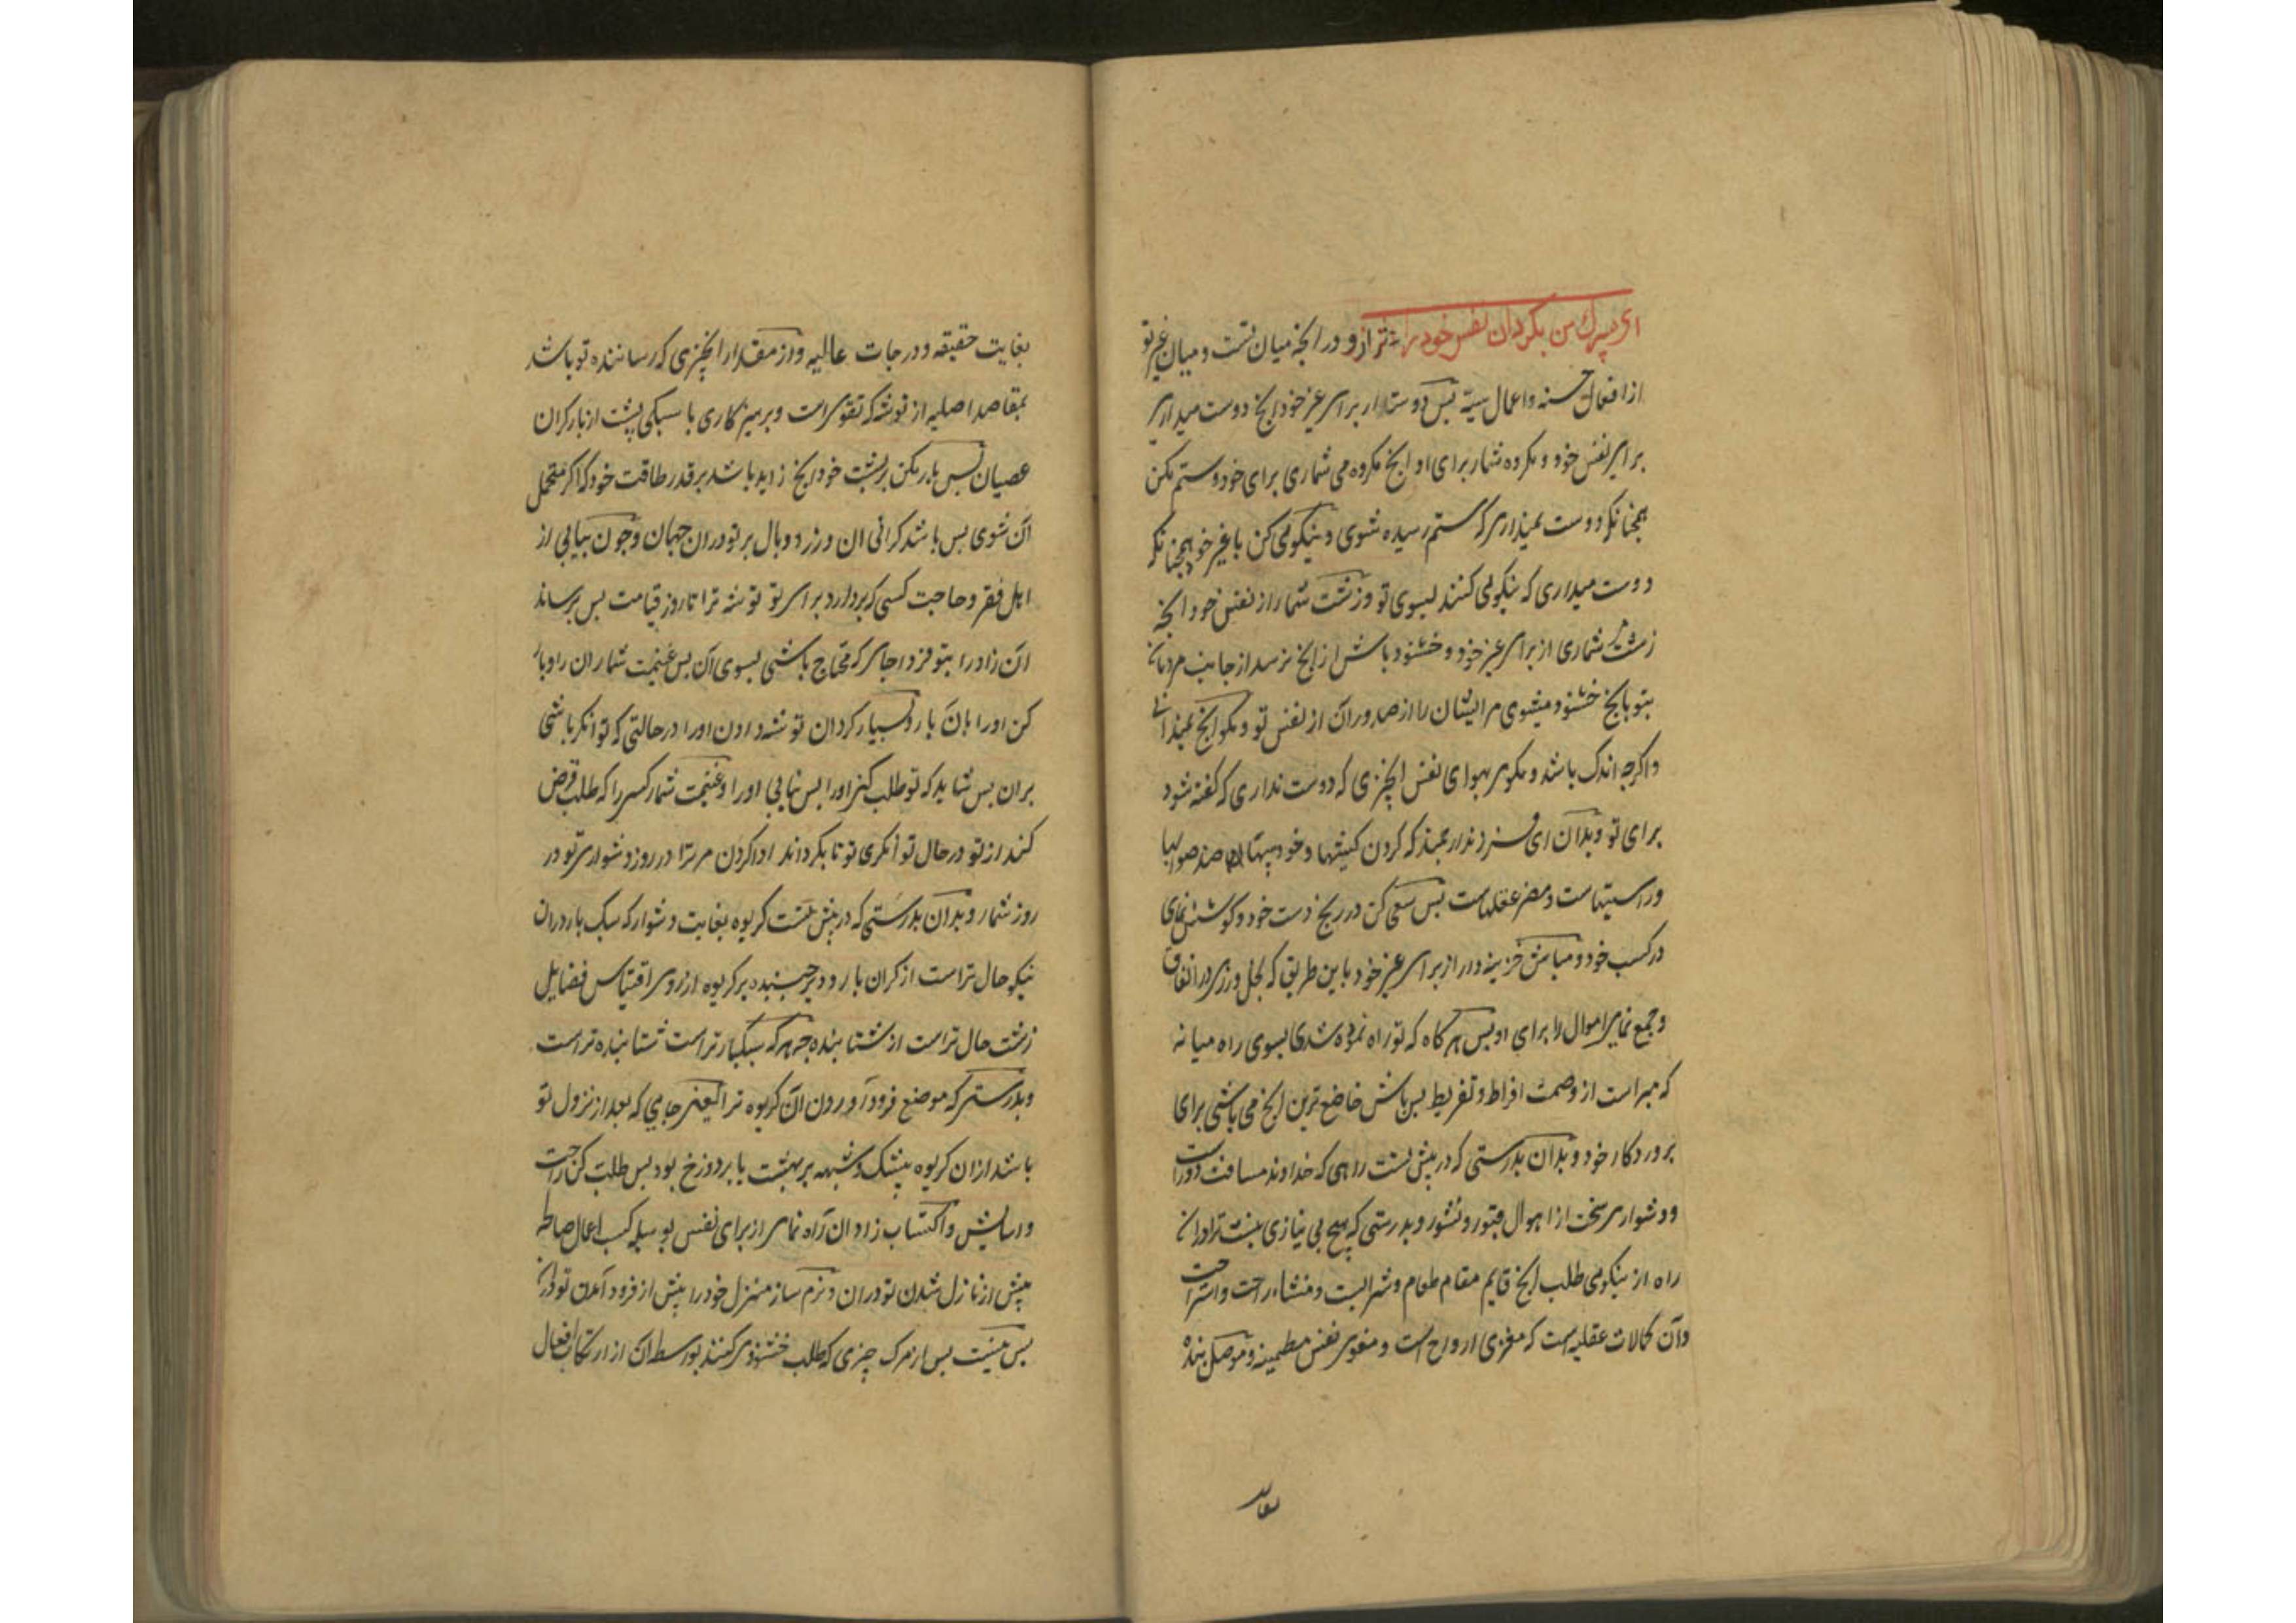 ای پسرک من بکردان نفس خود را ترازو در انچه میان تست و میان غیر تو
از افعال حسنه و اعمال سیئه پس دوستدار برای غیر خود انچ دوست میداری
برای نفس خود و مکروه شمار برای او انچ مکروه می شماری برای خود و ستم مکن
همچنانکه دوست نمیداری که ستم رسیده شوی و نیکوئی کن با غیر خود همچنانکه
دوست میداری که نیکوئی کنند بسوی تو و زشت شمار از نفس خود انچه
زشت شماری از برای غیر خود و خشنود باش از انچ برسد از جانب مردمان
بتو بانچ خشنود میشوی مر ایشان را از صدور آن از نفس تو و مکو انچ نمیدانی
و اکرچه اندک باشد و مکوی بهوای نفس انچیزی که دوست نداری که کفته شود
برای تو و بدان ای فرزند ارجمند که کردن کشیها و خود بینیها ضد صوابها
و راستیهاست و مضر عقلهاست پس سعی کن در رنج دست خود و کوشش نمای
در کسب خود و مباش خزینه دار از برای غیر خود باین طریق که بخل ورزی در انفاق
و جمع نمایی اموال را برای او پس هر کاه که تو راه نموده شدی بسوی راه میانه
که مبراست از وصمت افراط و تفریط پس باش خاضع ترین انچ می باشی برای
پروردکار خود و بدان بدرستی که در پیش تست راهی که خداوند مسافت دورست
و دشواری سخت از اهوال قبور و نشور و بدرستی که هیچ بی نیازی نیست ترا در ان
راه از نیکوئی طلب انچ قایم مقام طعام و شرابست و منشاء راحت و استراحت
و آن کمالات عقلیه است که مغزی ارواح است و مقوی نفس مطمینه و موصل بنده
بغایت حقیقه و درجات عالیه و از مقدار انچیزی که رساننده تو باشد
بمقاصد اصلیه از توشه که تقوی است و پرهیزکاری با سبکی پشت از بار کران
عصیان پس بار مکن بر پشت خود انچ زاید باشد بر قدر طاقت خود که اکر متحمل
آن شوی پس باشد کرانی ان وزر و وبال بر تو در ان جهان و چون بیابی از
اهل فقر و حاجت کسی که بردارد برای تو توشه ترا تا روز قیامت پس برساند
ان زاد را بتو فردا جای که محتاج باشی بسوی آن پس غنیمت شمار ان را و بار
کن او را بان بار و بسیار کردان توشه دادن او را در حالتی که توانکر باشی
بران پس شاید که تو طلب کنی او را پس نیابی او را و غنیمت شمار کسی را که طلب قرض
کند از تو در حال توانکری تو تا بکرداند ادا کردن مر ترا در روز دشواری تو در
روز شمار و بدان بدرستی که در پیش تست کریوه بغایت دشوار که سبک بار در ان
نیکو حال تر است از کران بار و دیر جنبنده بر کریوه از روی اقتباس فضایل
زشت حال تر است از شتابنده چه هر که سبکبارتر است شتابنده تر است
و بدرستی که موضع فرود آوردن ان کریوه ترا یعنی جایی که بعد از نزول تو
باشد از ان کریوه بیشک و شبهه بر بهشت یا بر دوزخ بود پس طلب کن راحت
و اسایش و اکتساب زاد ان راه نمای از برای نفس بوسیله کسب اعمال صالحه
پیش از نازل شدن تو در ان و نرم ساز منزل خود را پیش از فرود آمدن تو در ان
پس نیست پس از مرک چیزی که طلب خشنودی کنند بوسطه ان از ارتکاب افعال